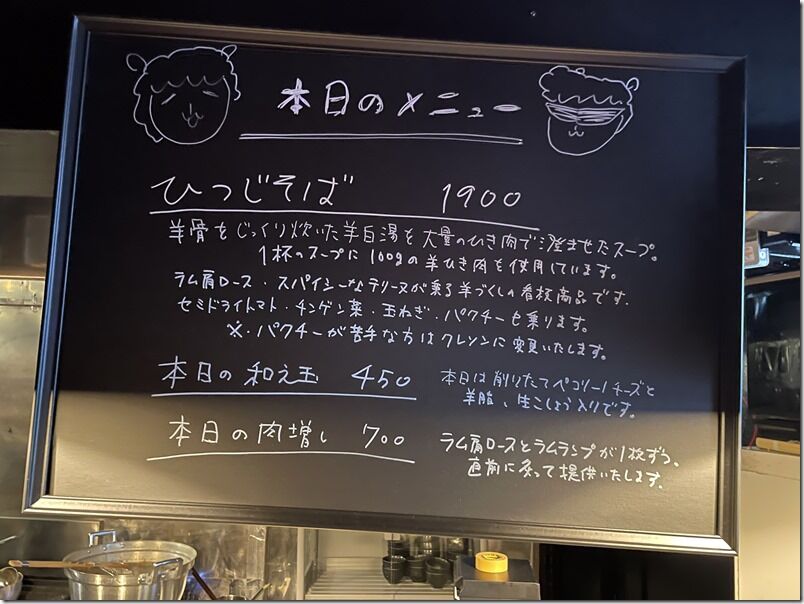 本日のメニュー
ひつじそば 1900
羊骨をじっくり炊いた羊白湯を大量のひき肉で澄ませたスープ。
1杯のスープに100gの羊ひき肉を使用しています。
ラム肩ロース・スパイシーなテリーヌが乗る羊づくしの看板商品です。
セミドライトマト・チンゲン菜・玉ねぎ・パクチーも乗ります。
※・パクチーが苦手な方はクレソンに変更いたします。
本日の和え玉 450
本日は削りたてペコリーノチーズと
羊脂、生こしょう入りです。
本日の肉増し 700
ラム肩ロースとラムランプが1枚ずつ。
直前に炙って提供いたします。